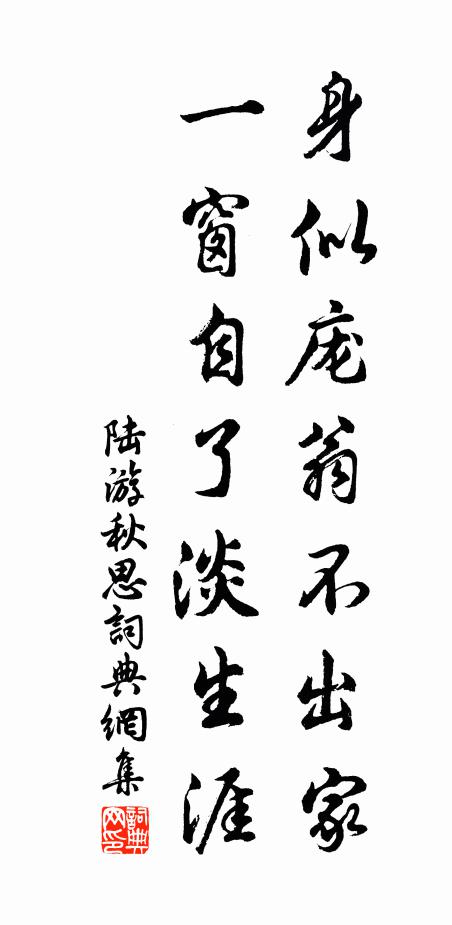 身似庞翁不出家
一窗自了淡生涯
陆游秋思詞典網集
詞典网印